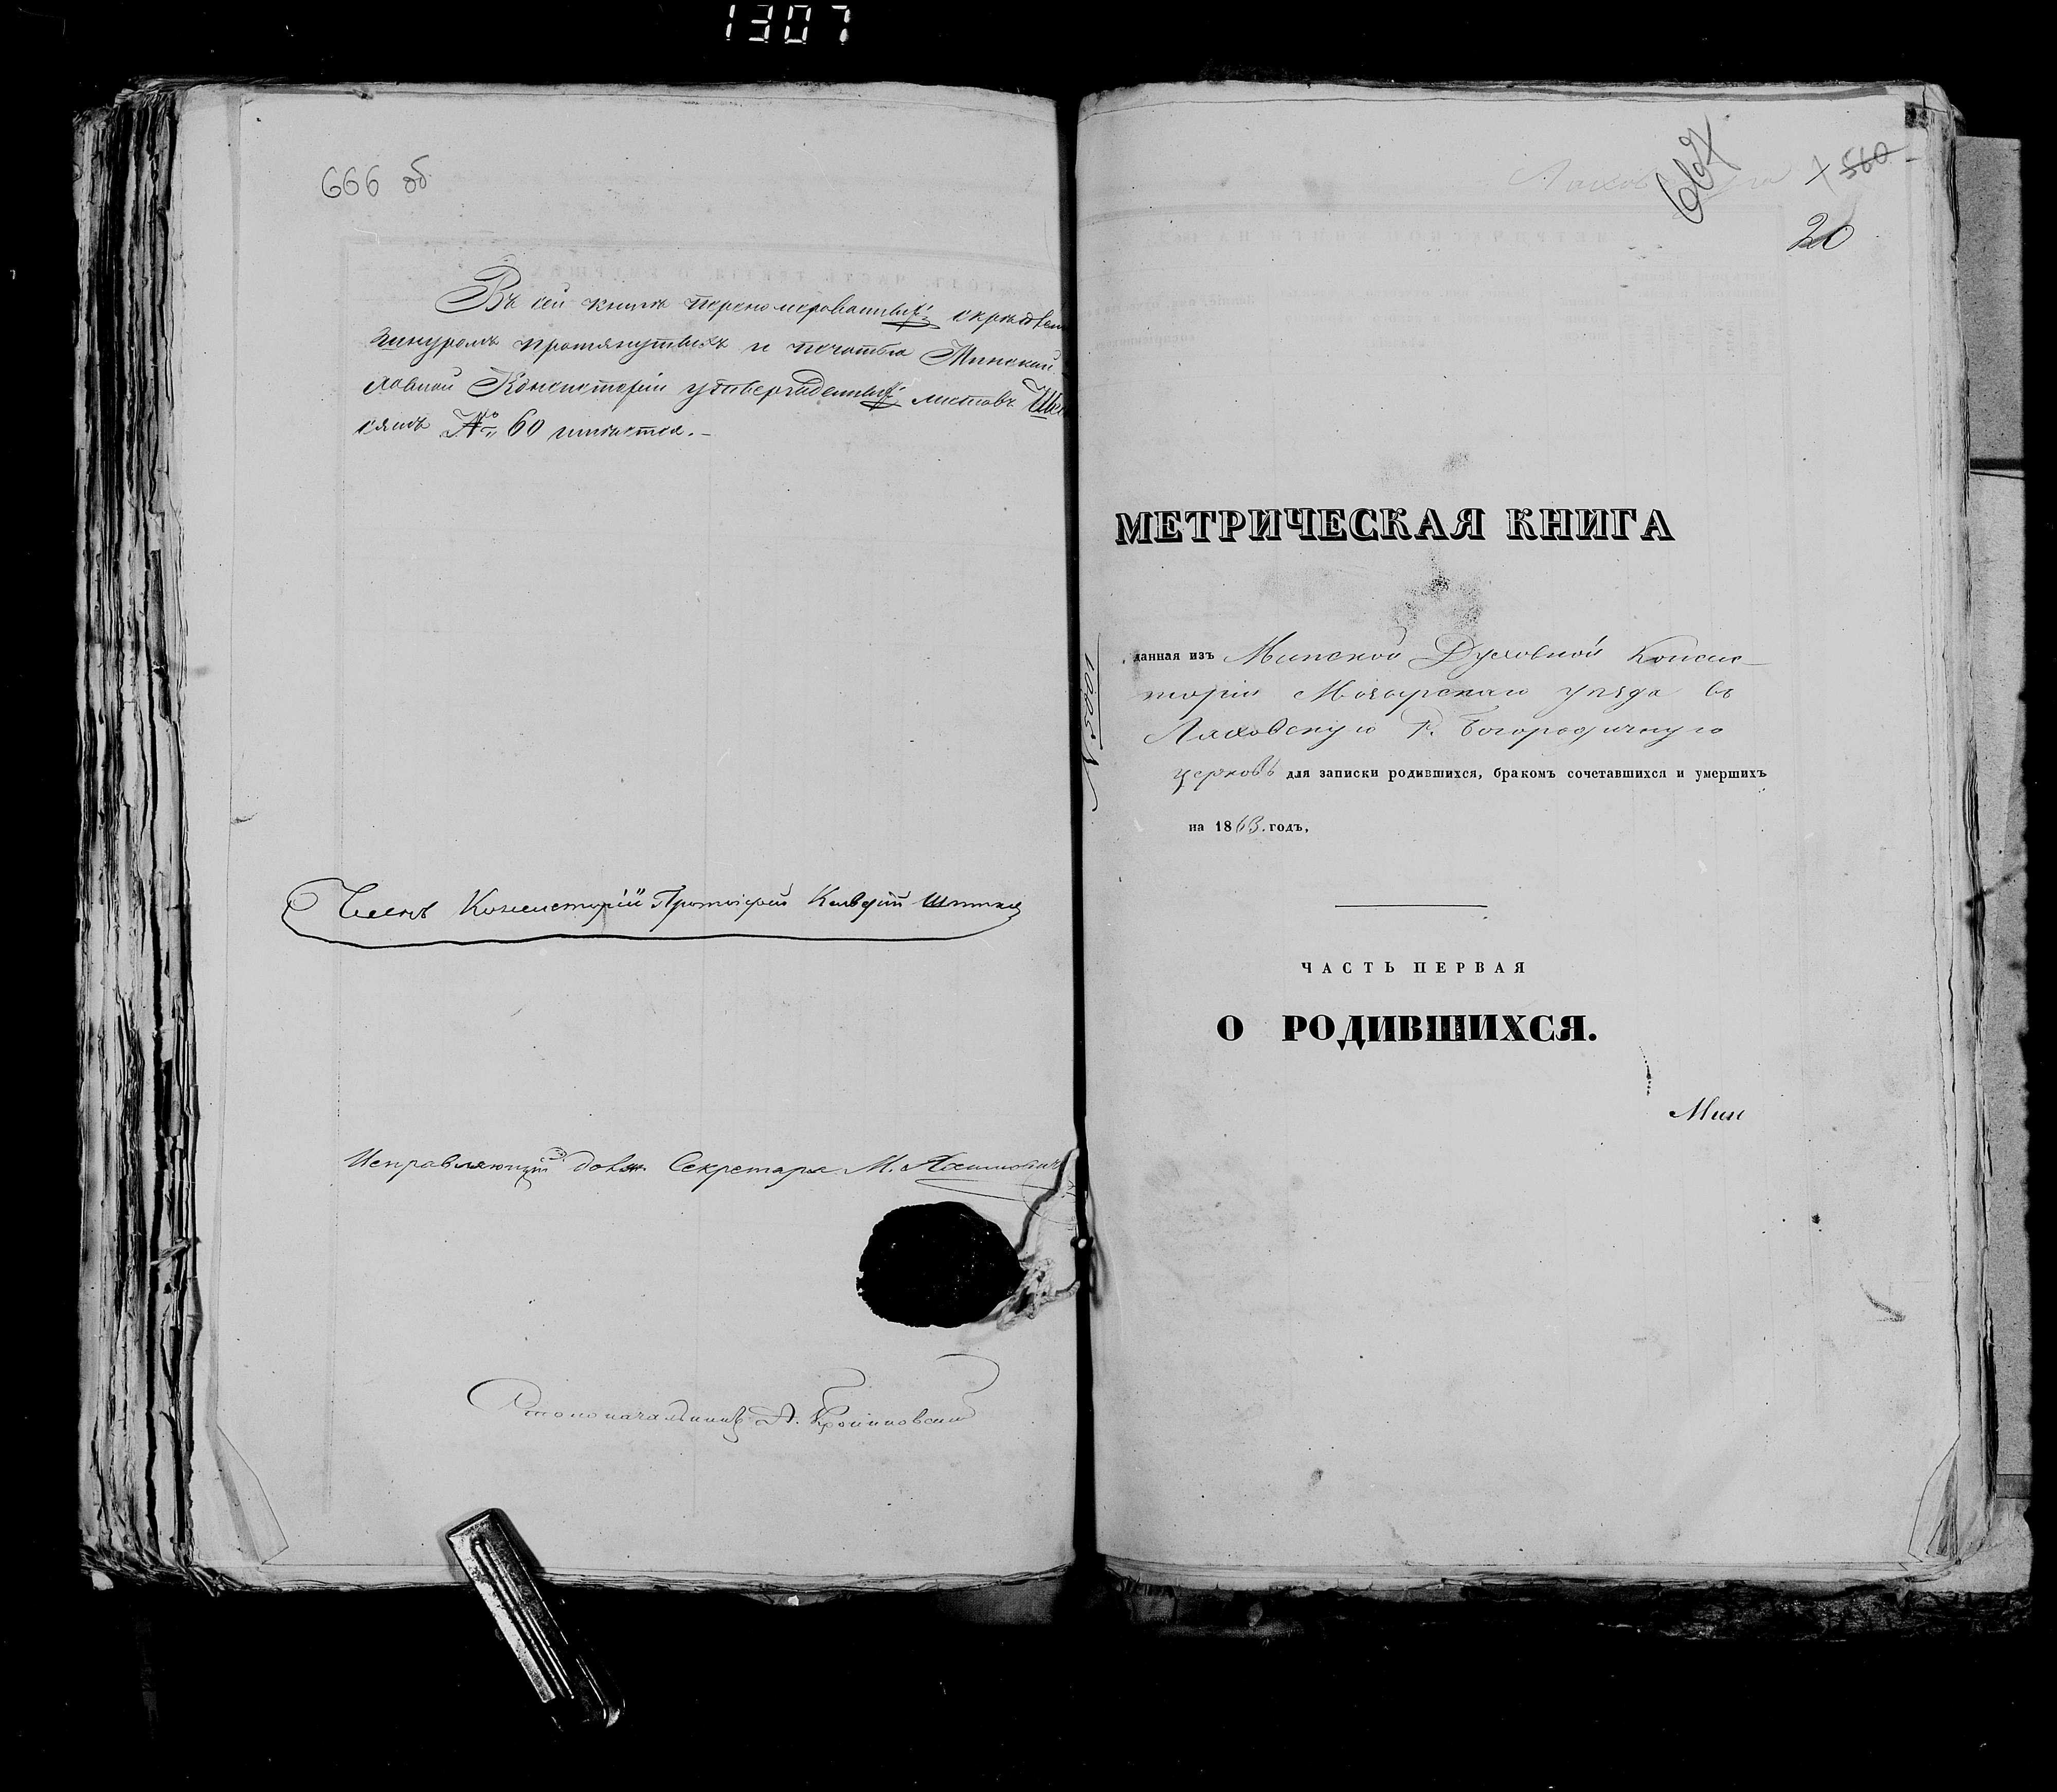 1307
666 об
Въ сей книгѣ переномерованныхъ скрѣплен
шнуромъ протянутыхъ и печатью Минской
ховной Консисторіи утвержденныхъ листовъ Шес
сятъ № 60 читается.
Членъ Консисторіи Протоіерей
Исправляющій долж. Секретаря М.
Столоначальникъ А.
667
560
20
МЕТРИЧЕСКАЯ КНИГА
данная изъ Минской Духовной Консис-
торіи Мозырскаго уѣзда въ
Ляховскую Р. Богородичную
церковь для записки родившихся, бракомъ сочетавшихся и умершихъ
на 1863. годъ,
ЧАСТЬ ПЕРВАЯ
О РОДИВШИХСЯ.
Мин